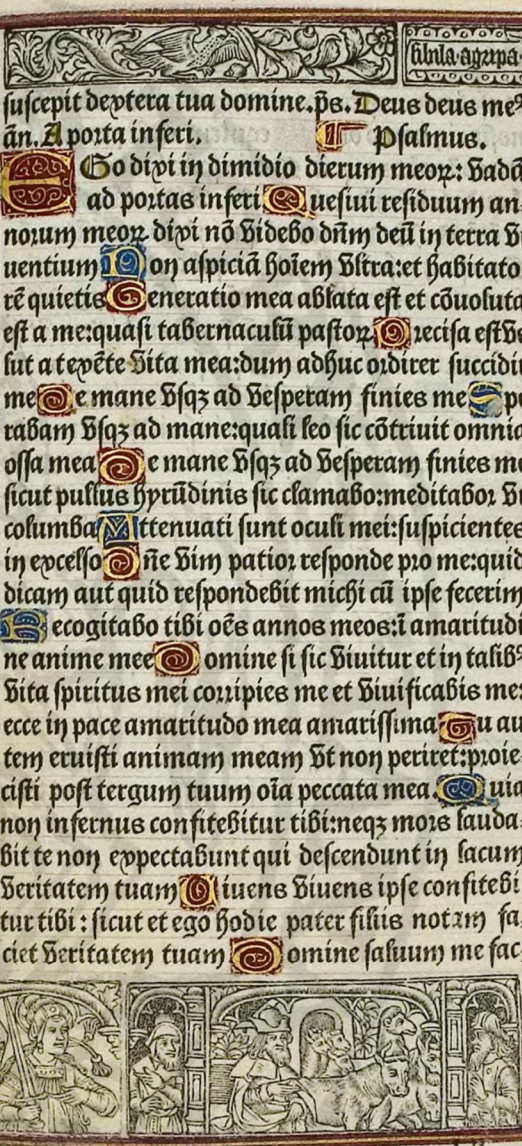 sibila agripa
suscepit dextera tua domine.p̄s. Deus deus meꝰ
ān. A porta inferi. Psalmus.
EGo dixi in dimidio dierum meoꝝ: vadā
ad portas inferi Quesiui residuum an
norum meoꝝ dixi nō videbo dn̄m deū in terra vi
uentium Non aspiciā hoīem vltra:et habitato
rē quietis Generatio mea ablata est et cōuoluta
est a me:quasi tabernaculū pastoꝝ Precisa est ve
lut a texēte vita mea:dum adhuc ordirer succidit
me De mane vsqꝫ ad vesperam finies me Spe
rabam vsqꝫ ad mane:quasi leo sic cōtriuit omnia
ossa mea De mane vsqꝫ ad vesperam finies me
sicut pullus hyrūdinis sic clamabo:meditabor vt
columba Attenuati sunt oculi mei:suspicientes
in excelso Dn̄e vim patior responde pro me:quid
dicam aut quid respondebit michi cū ipse fecerim
Recogitabo tibi oēs annos meos:ī amaritudi
ne anime mee Domine si sic viuitur et in talibꝰ
vita spiritus mei corripies me et viuificabis me:
ecce in pace amaritudo mea amarissima Tu au
tem eruisti animam meam vt non periret:proie
cisti post tergum tuum oīa peccata mea. Quia
non infernus confitebitur tibi:neqꝫ mors lauda
bit te non expectabunt qui descendunt in lacum
veritatem tuam Viuens viuens ipse confitebi
tur tibi : sicut et ego hodie pater filiis notam fa
ciet veritatem tuam Domine saluum me fac